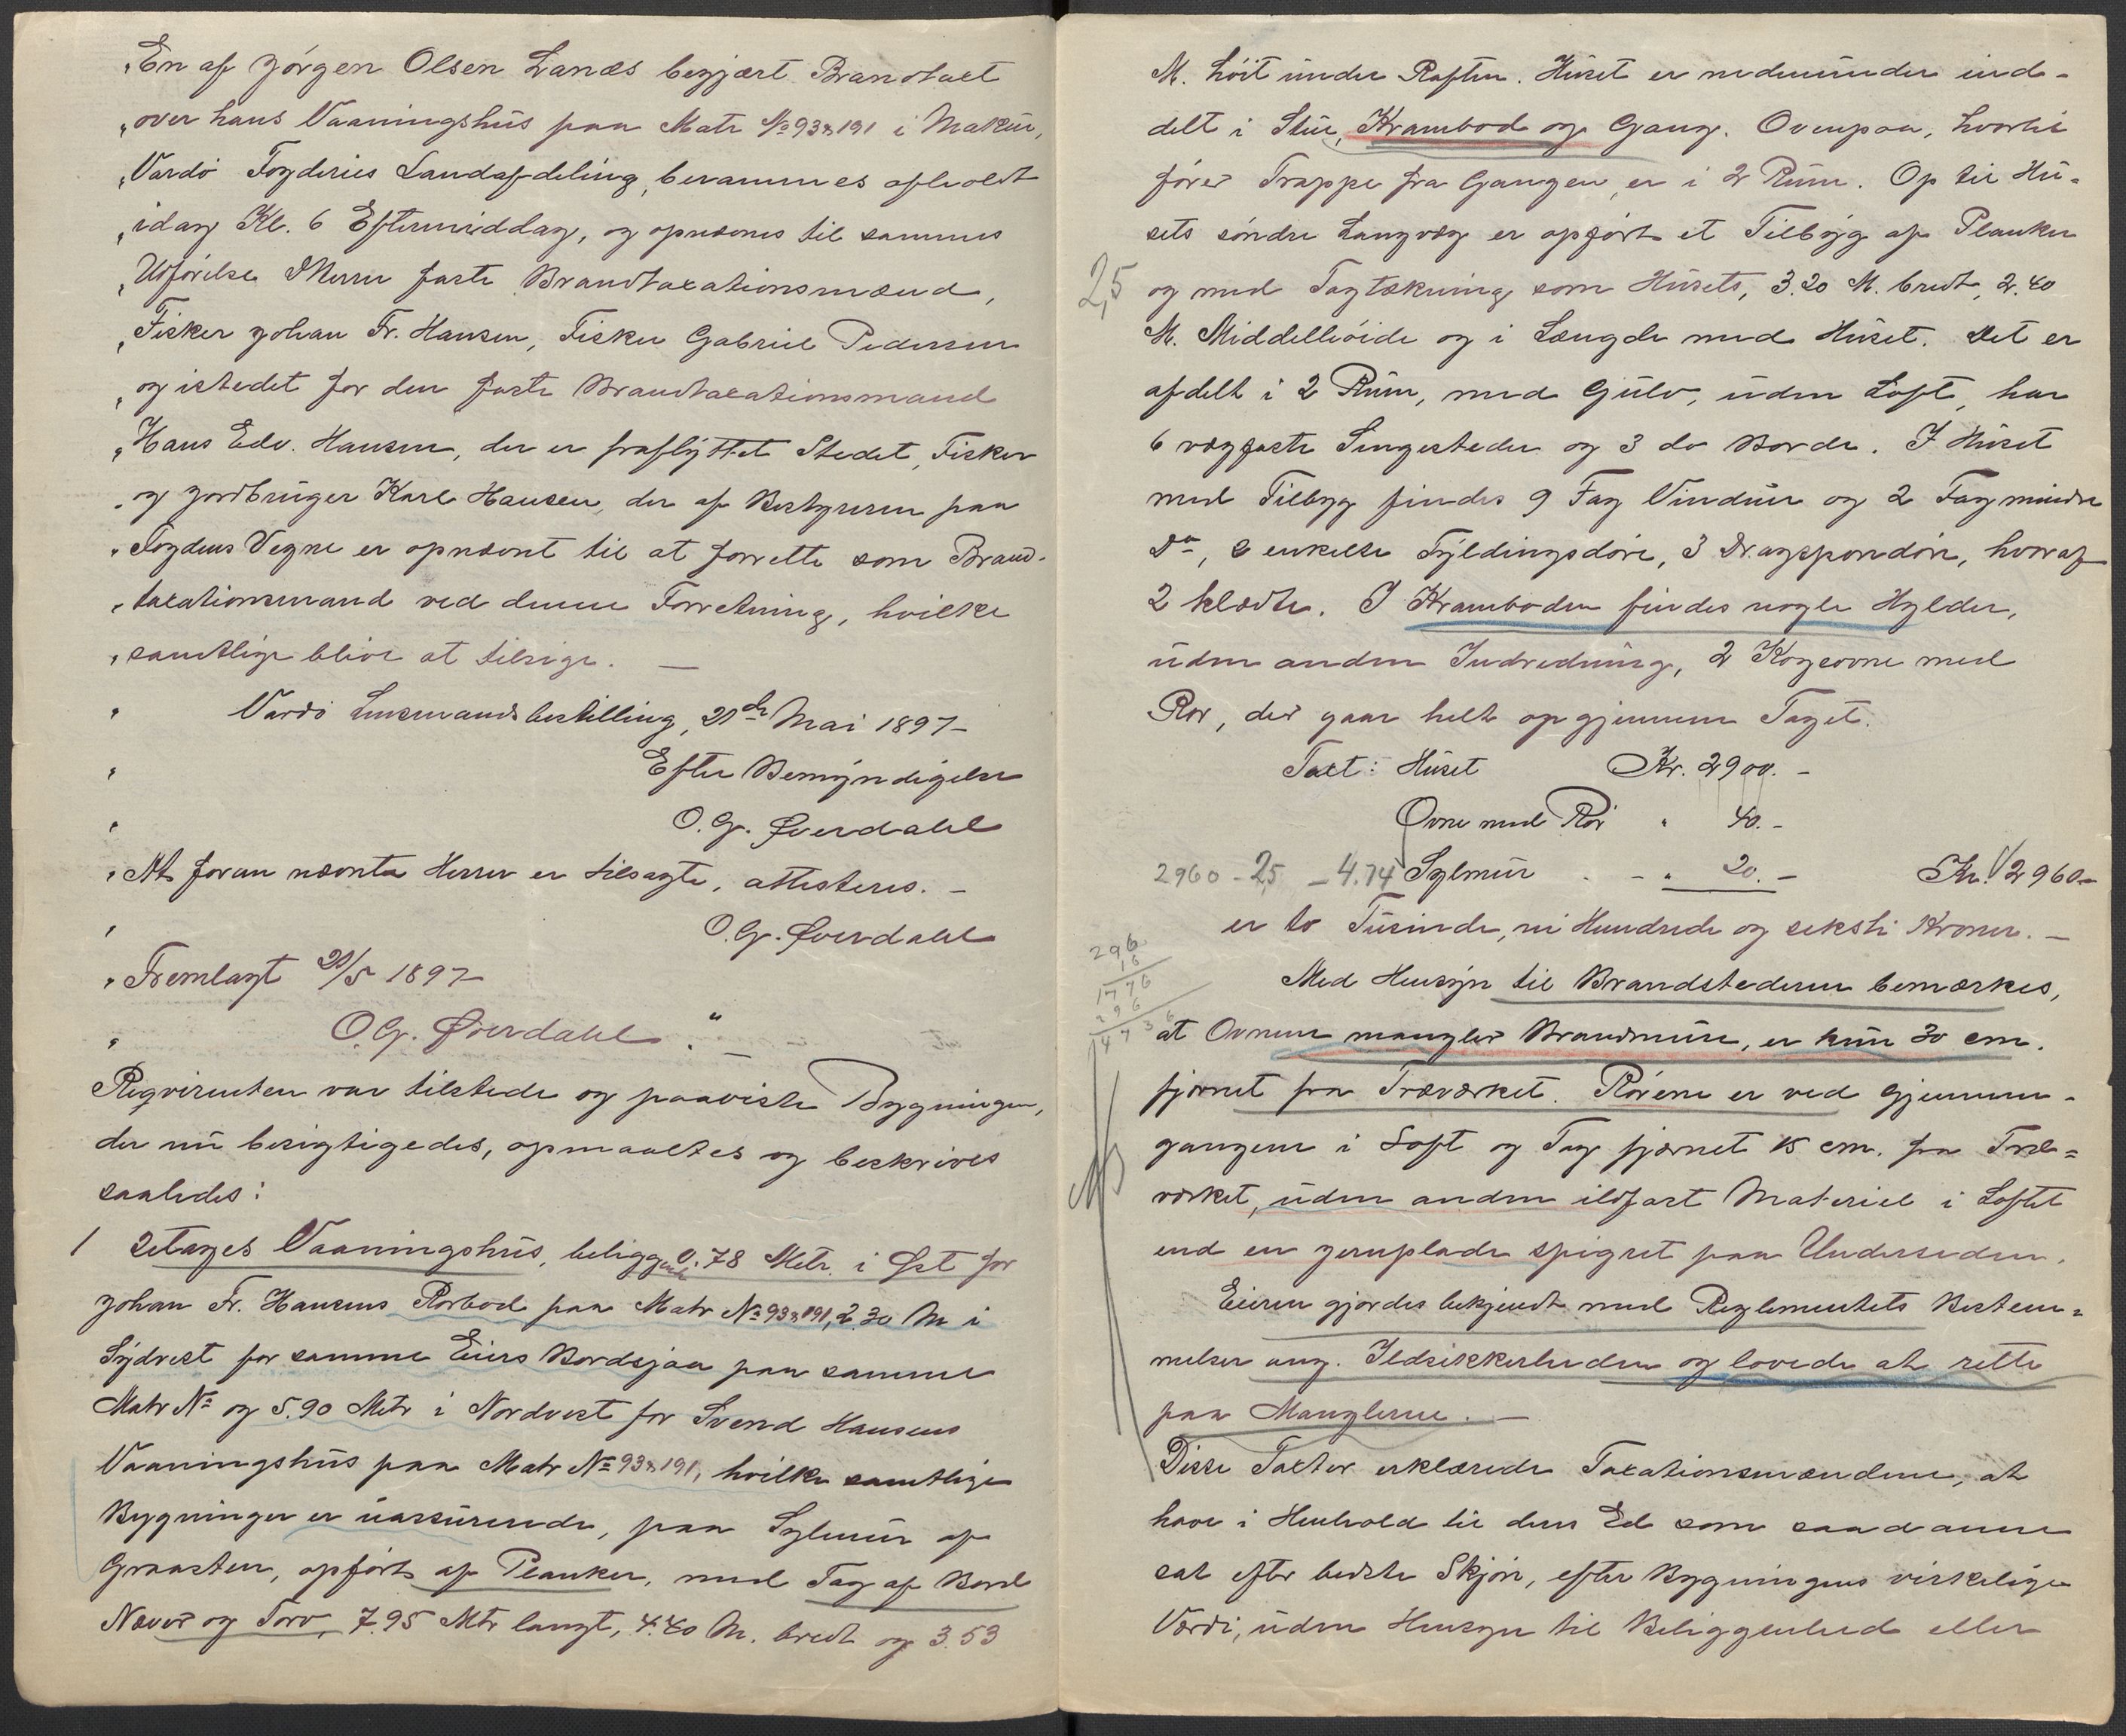 „En af Jörgen Olsen Lanæs begjært Brandtaxt
„over hans Vaaningshus paa Matr No 93 & 191 i Makur,
„Vardö Fogderies Landafdeling, berammes afholdt
„idag Kl. 6 Eftermiddag, og opnævnes til sammes
„Udførelse D'Herrer faste Brandtaxationsmænd,
„Fisker Johan Fr. Hansen, Fisker Gabriel Pedersen
„og istedet for den faste Brandtaxationsmand
„Hans Edv. Hansen, der er fraflyttet Stedet, Fisker
„og Jordbruger Karl Hansen, der af Bestyreren paa
„Fogdens Vegne er opnævnt til at forrette som Brand-
„taxationsmand ved denne Forretning, hvilke
„samtlige blive at tilsige. —
„ Vardö Lensmandsbestilling, 21de Mai 1897 –
„ Efter Bemyndigelse
„ O. G. Øverdahl
„At foran nævnte Herrer er tilsagte, attesteres. –
„ O. G. Øverdahl
„Fremlagt 21/5 1897
„ O. G. Øverdahl . “
Reqvirenten var tilstede og paaviste Bygningen,
der nu besigtigedes, opmaaltes og beskrives
saaledes:
1 2etages Vaaningshus, beliggende 0.78 Metr. i Øst for
Johan Fr. Hansens Rorbod paa Matr No 93 & 191, 2.30 M i
Sydvest for samme Eiers Bordsjaa paa samme
Matr No og 5.90 Metr i Nordvest for Svend Hansens
Vaaningshus paa Matr No 93 & 191, hvilke samtlige
Bygninger er uassurerede, paa Sylmur af
Graasten, opført af Planker, med Tag af Bord
Næver og Torv, 7.95 Mtr langt, 4.40 M. bredt og 3.53
M. höit under Raften. Huset er nedenunder ind-
delt i Stue, Krambod og Gang. Ovenpaa, hvortil
fører Trappe fra Gangen, er i 2 Rum. Op til Hu-
sets söndre Langvæg er opført et Tilbyg af Planker
2,5 og med Tagtækning som Husets, 3.20 M. bredt, 2.40
M. Middelhöide og i Længde med Huset. Det er
afdelt i 2 Rum, med Gulv, uden Loft, har
6 vægfaste Sengesteder og 3 do Borde. I Huset
med Tilbyg findes 9 Fag Vinduer og 2 Fag mindre
Do, 2 enkelte Fyldingsdöre, 3 Dragspondöre, hvoraf
2 klædte. I Kramboden findes nogle Hylder,
uden anden Indredning, 2 Kogeovne med
Rör, der gaar helt op gjennem Taget.
Taxt: Huset Kr. 2900. –
Ovne med Rör „ 40. –
2960 – 2,5 – 4.74 Sylmur . – „ 20. – Kr. 2960 –
er to Tusinde, ni Hundrede og seksti Kroner. —
296
16
1776
296
4736
Med Hensyn til Brandstederne bemærkes,
at Ovnene mangler Brandmure, er kun 30 cm.
fjærnet fra Træværket. Rörene er ved Gjennem-
gangene i Loft og Tag fjærnet 15 cm. fra Træ-
værket, uden anden ildfast Materiel i Loftet
end en Jernplade spigret paa Undersiden.
Eieren gjordes bekjendt med Reglementets Bestem-
melser ang. Ildsikkerheden og lovede at rette
paa Manglerne. —
Disse Taxter erklærede Taxationsmændene, at
have i Henhold til deres Ed som saadanne
sat efter bedste Skjön, efter Bygningens virkelige
Værdi, uden Hensyn til Beliggenhed eller